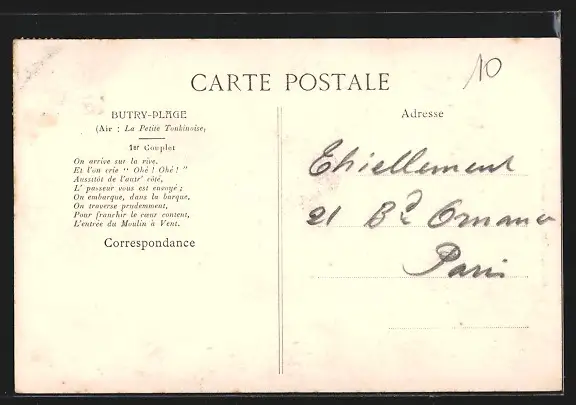 10
CARTE POSTALE
BUTRY-PLAGE
(Air : La Petite Tonkinoise)
1er Couplet
On arrive sur la rive.
Et l'on crie " Ohé ! Ohé ! "
Aussitôt de l'autr' côté,
L' passeur vous est envoyé ;
On embarque, dans la barque,
On traverse prudemment,
Pour franchir le cœur content,
L'entrée du Moulin à Vent.
Correspondance
Adresse
Thiellement
21 Bd Ornano
Paris